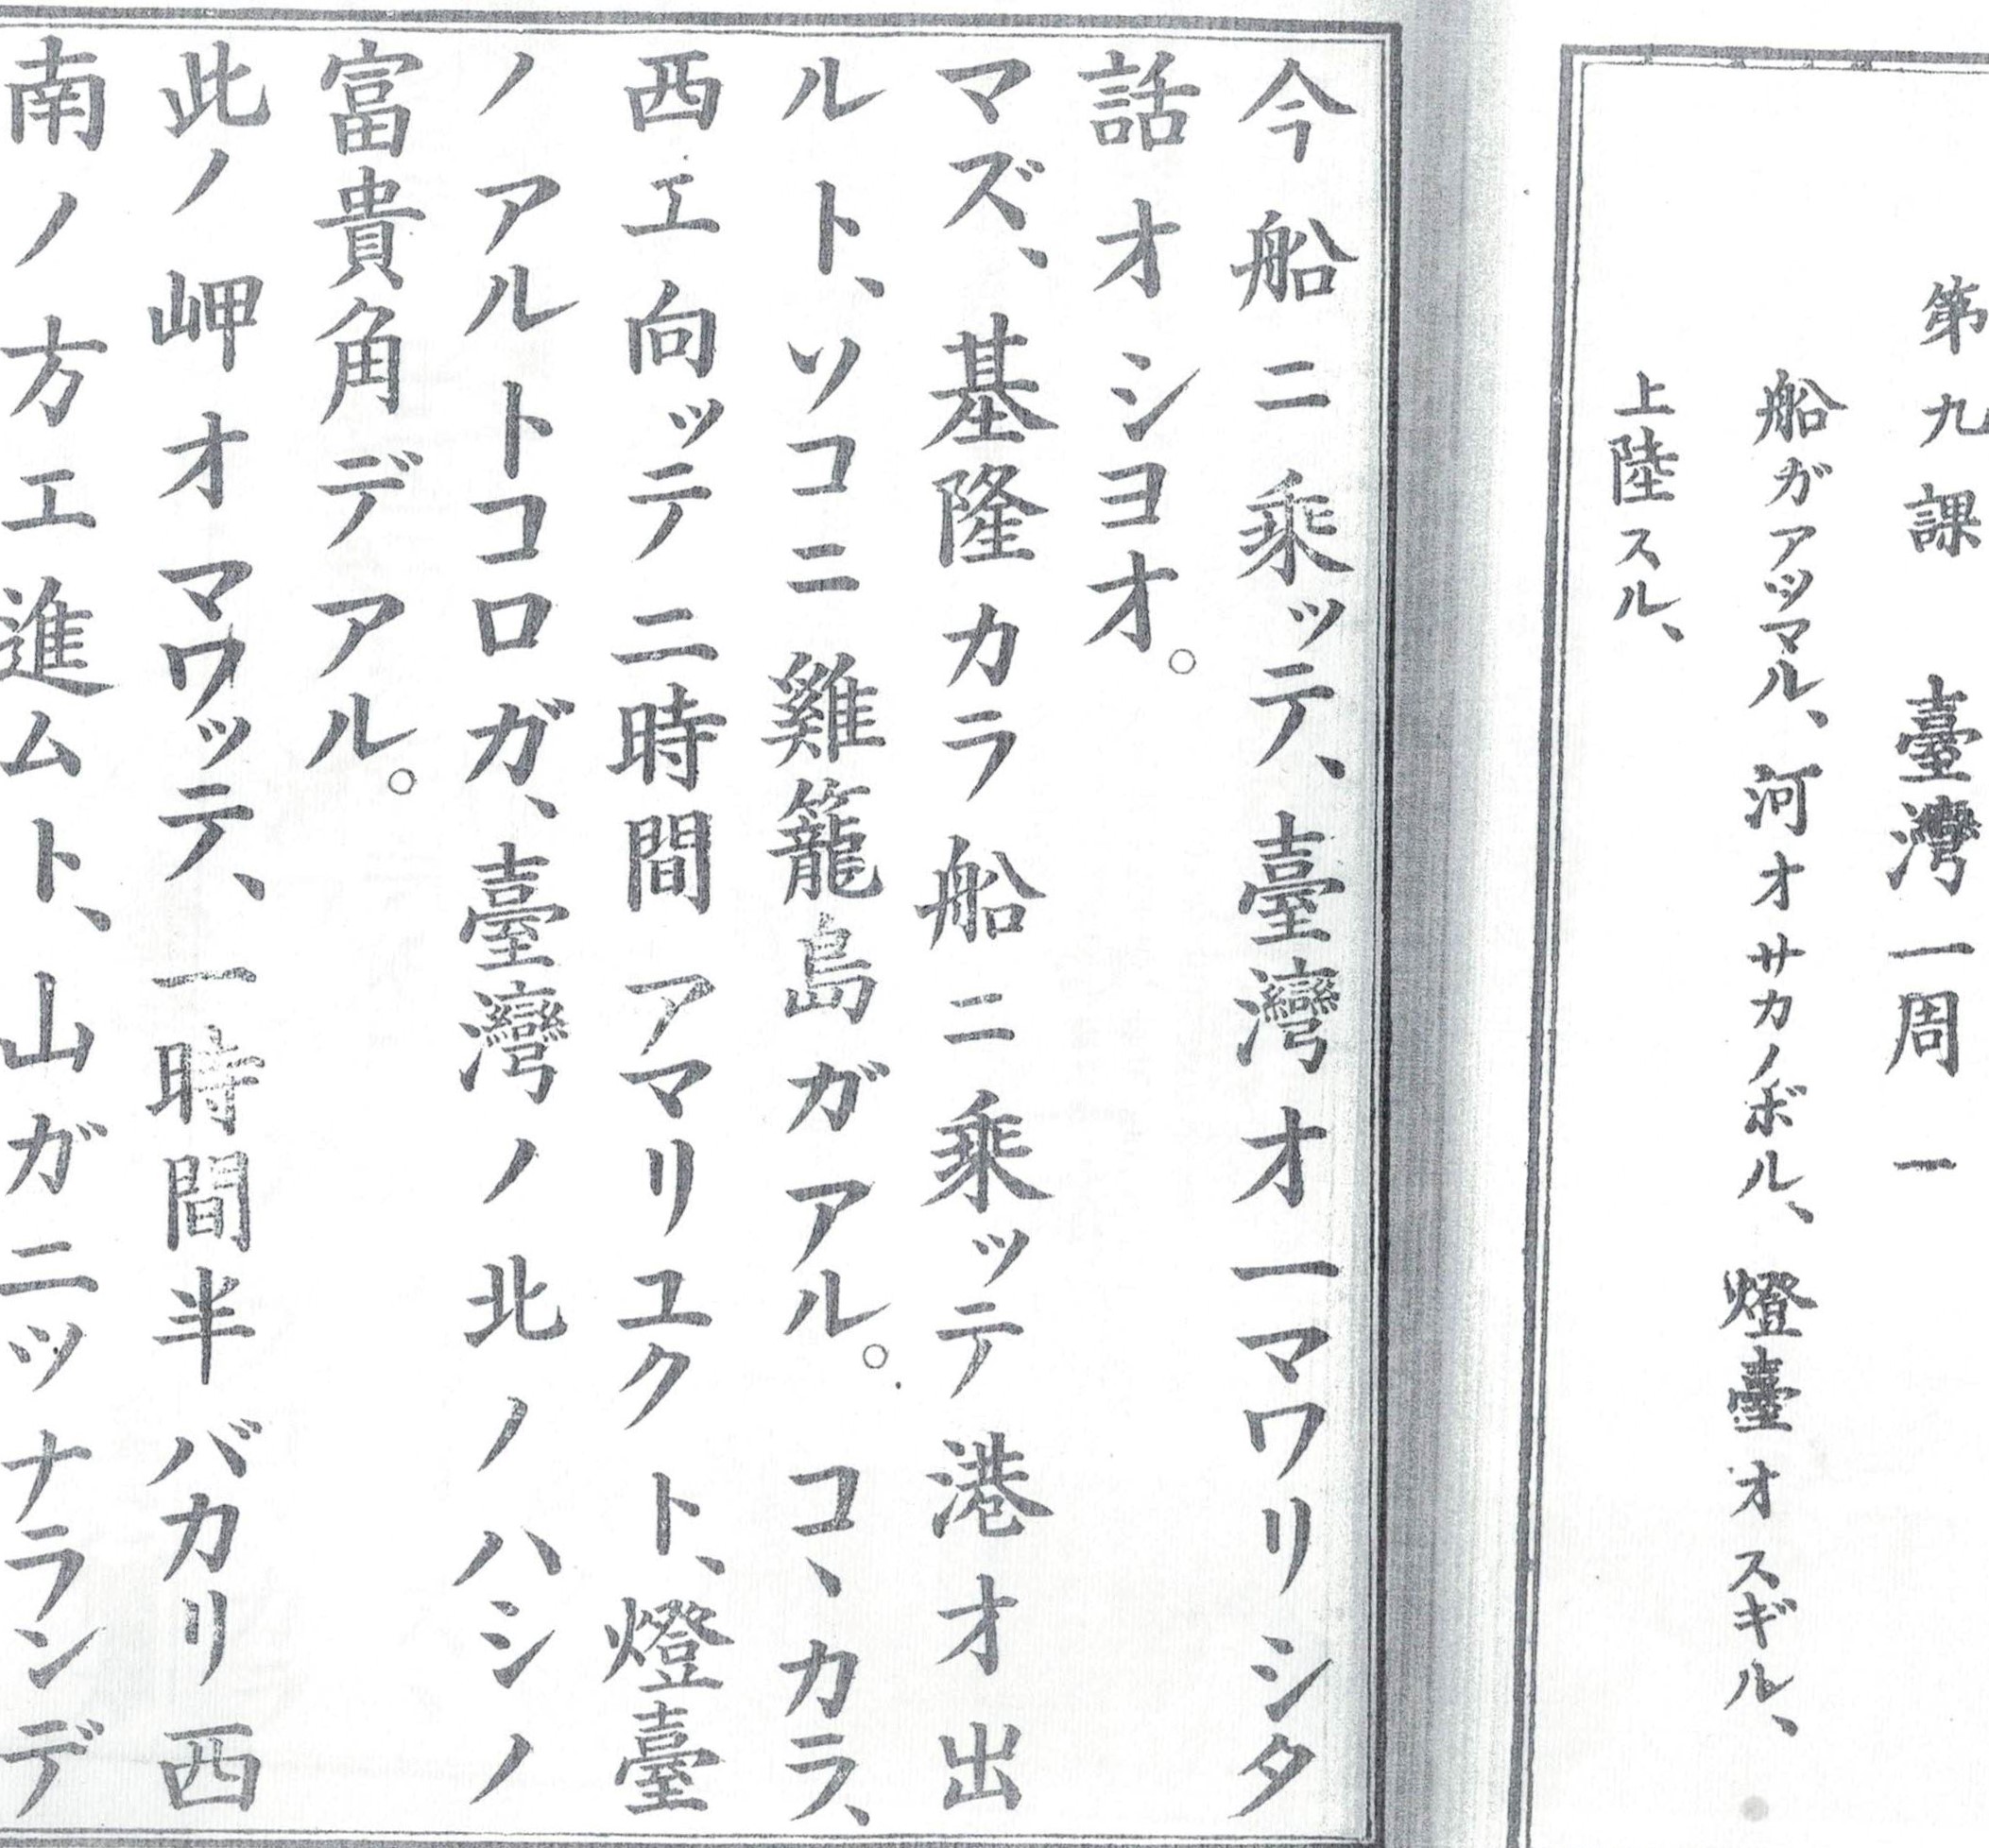 第九課　臺灣一周　一
船ガアツマル、河オサカノボル、燈臺オスギル、
上陸スル、
今船ニ乘ッテ、臺灣オ一マワリシタ
話オシヨオ。
マズ、基隆カラ船ニ乘ッテ港オ出
ルト、ソコニ雞籠島ガアル。コヽカラ、
西エ向ッテ二時間アマリユクト、燈臺
ノアルトコロガ、臺灣ノ北ノハシノ
富貴角デアル。
此ノ岬オマワッテ、一時間半バカリ西
南ノ方エ進ムト、山ガ二ツナランデ